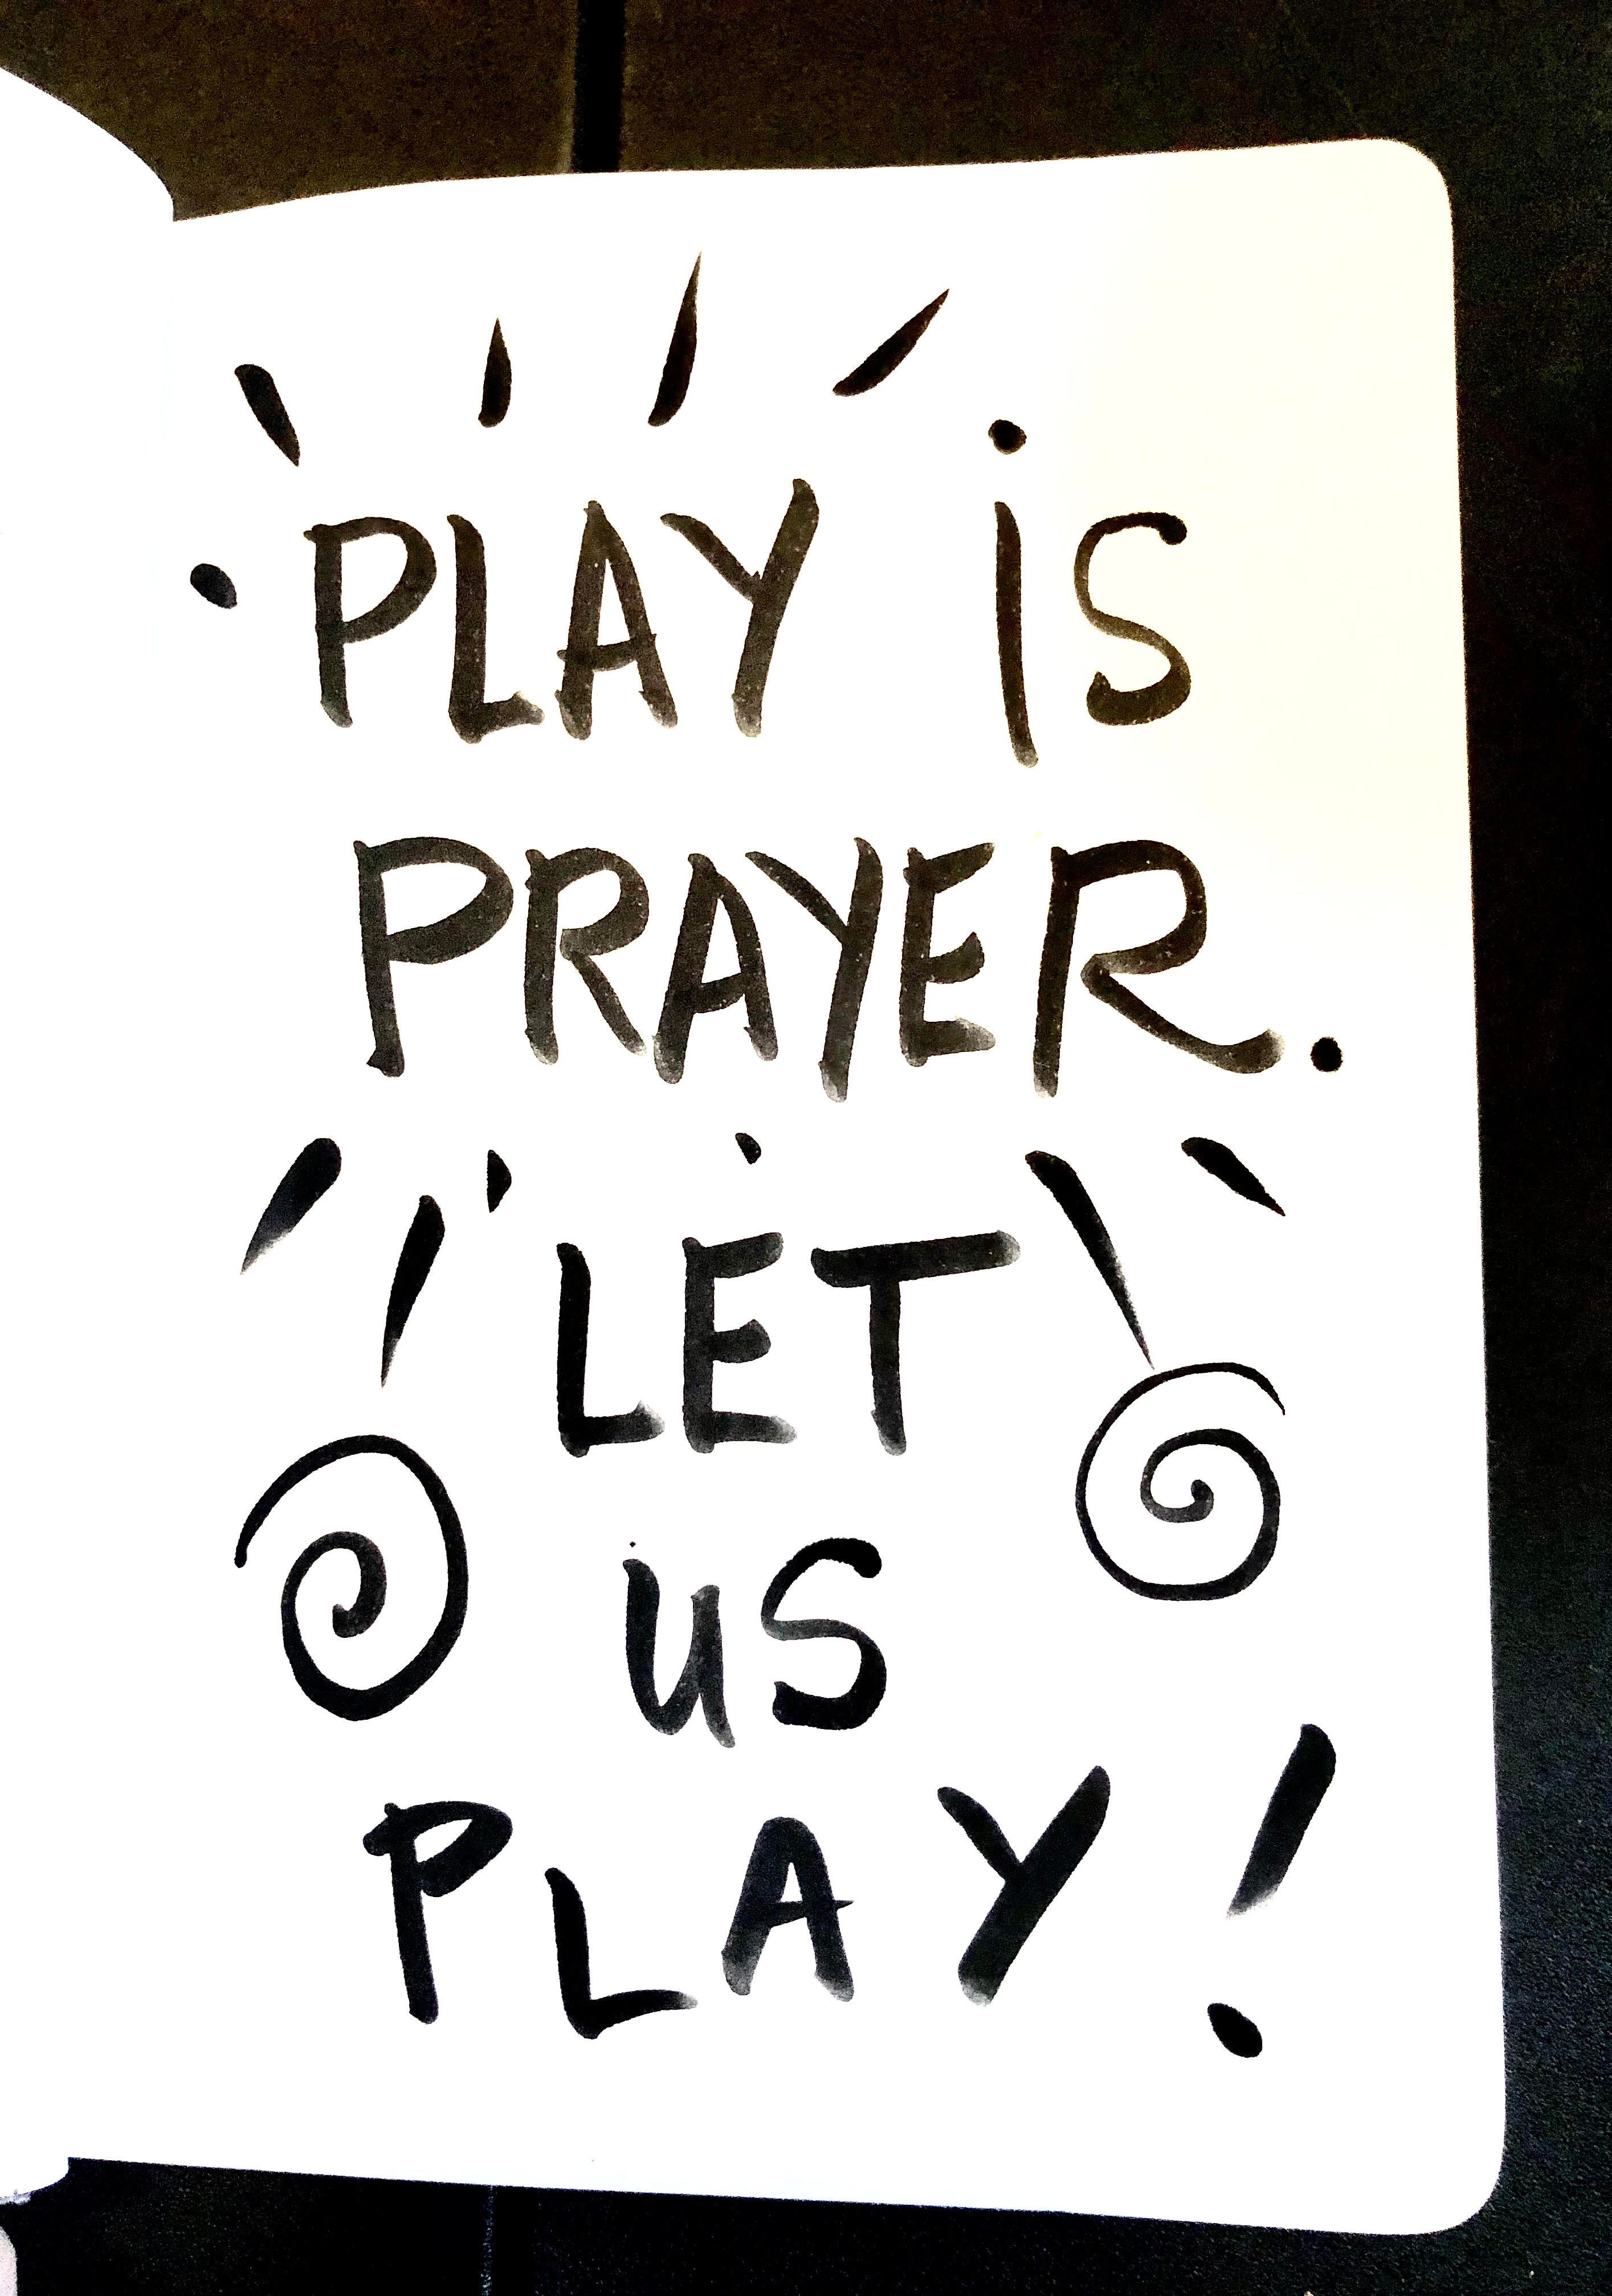 PLAY iS
PRAYER.
LET
uS
PLAY!